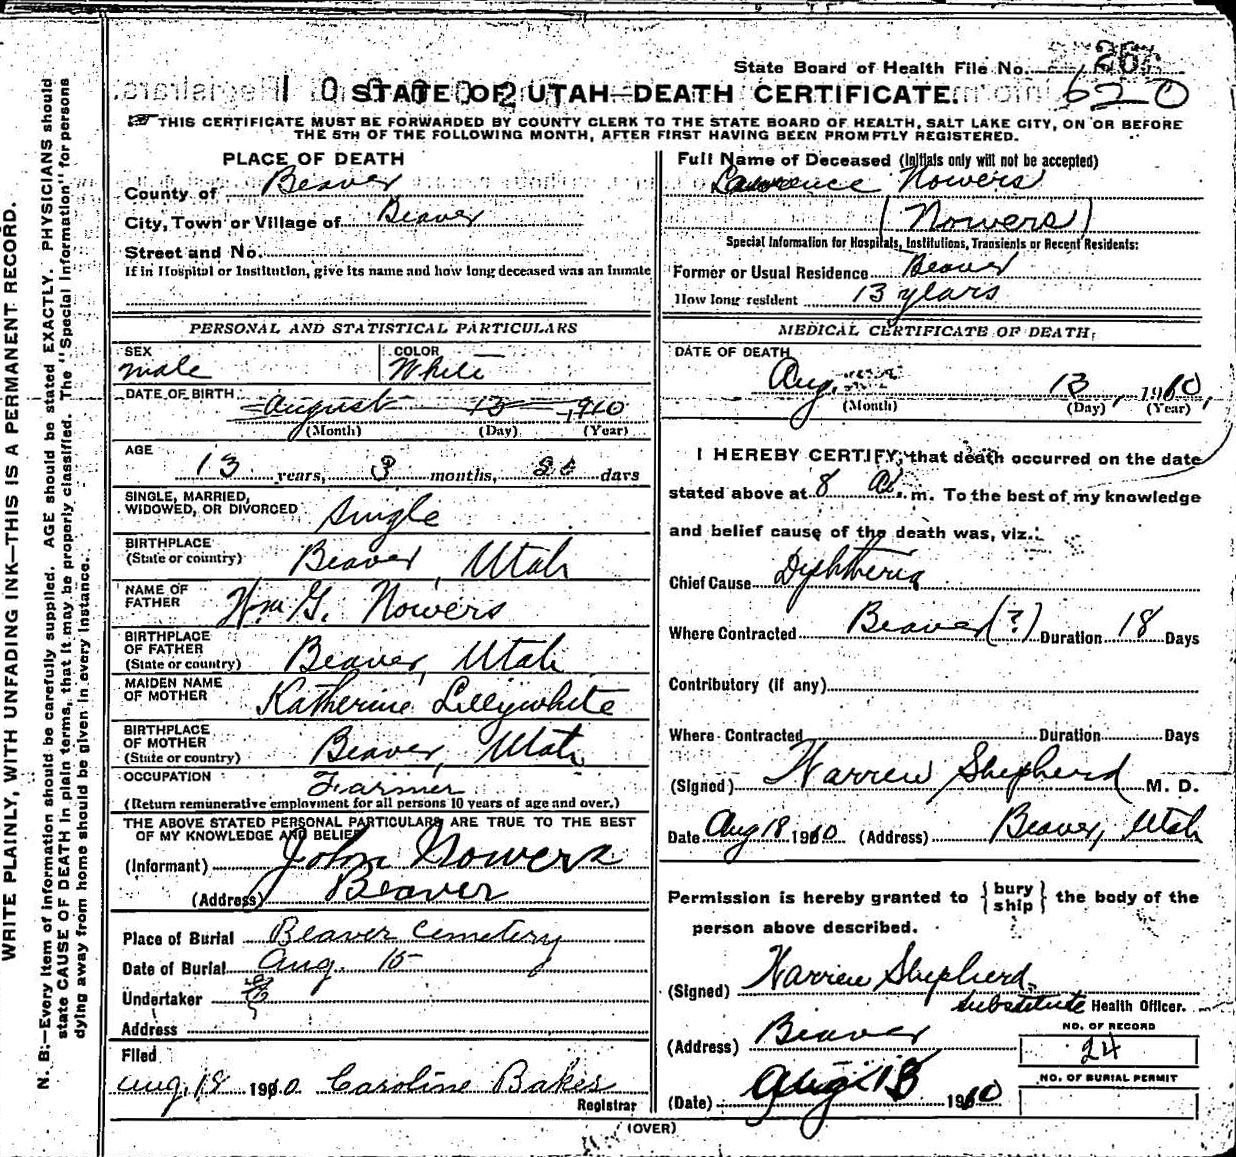 WRITE PLAINLY, WITH UNFADING INK—THIS IS A PERMANENT RECORD.
N. B.—Every item of information should be carefully supplied. AGE should be stated EXACTLY. PHYSICIANS should
state CAUSE OF DEATH in plain terms, that it may be properly classified. The "Special Information" for persons
dying away from home should be given in every instance.
State Board of Health File No. 26
620
STATE OF UTAH—DEATH CERTIFICATE.
THIS CERTIFICATE MUST BE FORWARDED BY COUNTY CLERK TO THE STATE BOARD OF HEALTH, SALT LAKE CITY, ON OR BEFORE
THE 5TH OF THE FOLLOWING MONTH, AFTER FIRST HAVING BEEN PROMPTLY REGISTERED.
PLACE OF DEATH
County of Beaver
City, Town or Village of Beaver
Street and No.
If in Hospital or Institution, give its name and how long deceased was an Inmate
PERSONAL AND STATISTICAL PARTICULARS
SEX
male
COLOR
White
DATE OF BIRTH
August 13, 1910
(Month) (Day) (Year)
AGE
13 years, 3 months, days
SINGLE, MARRIED,
WIDOWED, OR DIVORCED Single
BIRTHPLACE
(State or country) Beaver, Utah
NAME OF
FATHER Wm G. Nowers
BIRTHPLACE
OF FATHER
(State or country) Beaver, Utah
MAIDEN NAME
OF MOTHER Katherine Lillywhite
BIRTHPLACE
OF MOTHER
(State or country) Beaver, Utah
OCCUPATION Farmer
(Return remunerative employment for all persons 10 years of age and over.)
THE ABOVE STATED PERSONAL PARTICULARS ARE TRUE TO THE BEST
OF MY KNOWLEDGE AND BELIEF
(Informant) John Nowers
(Address) Beaver
Place of Burial Beaver Cemetery
Date of Burial Aug. 15
Undertaker
Address
Filed
Aug. 18 1910 Caroline Baker
Registrar
Full Name of Deceased (Initials only will not be accepted)
Lawrence Nowers
(Nowers)
Special Information for Hospitals, Institutions, Transients or Recent Residents:
Former or Usual Residence Beaver
How long resident 13 years
MEDICAL CERTIFICATE OF DEATH.
DATE OF DEATH
Aug. 13, 1910,
(Month) (Day) (Year)
I HEREBY CERTIFY, that death occurred on the date
stated above at 8 A. m. To the best of my knowledge
and belief cause of the death was, viz.:
Chief Cause Diphtheria
Where Contracted Beaver (?) Duration 18 Days
Contributory (if any)
Where Contracted Duration Days
(Signed) Warren Shepherd M. D.
Date Aug 18 1910 (Address) Beaver, Utah
Permission is hereby granted to {bury ship} the body of the
person above described.
(Signed) Warren Shepherd.
substitute Health Officer.
(Address) Beaver
(Date) Aug 18 1910
NO. OF RECORD
24
NO. OF BURIAL PERMIT
(OVER)